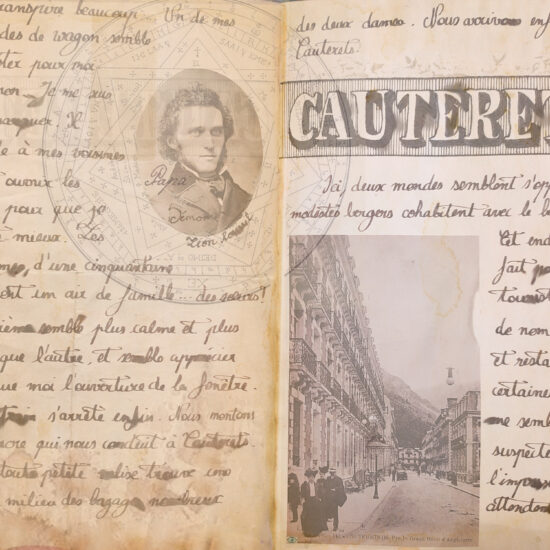 transpire beaucoup. Un de mes
des de wagon semble
ter pour moi
non. Je me suis
quer. Il
e à mes voisines
ouvrir les
pour que je
e mieux. Les
mes, d'une cinquantaine
ont un air de famille... des sœurs?
ième semble plus calme et plus
que l'autre, et semble apprécier
que moi l'ouverture de la fenêtre.
train s'arrête enfin. Nous montons
core qui nous conduit à Cauterets.
toute petite valise trouve une
milieu des bagages nombreux
Papa
Simon
Lion
des deux dames. Nous arrivons enf
Cauterets.
CAUTERE
Ici deux mondes semblent s'op
modestes bergers cohabitent avec le b
Cet end
fait pa
touris
de nom
et resta
certaine
me semb
suspecte
l'impres
attendon